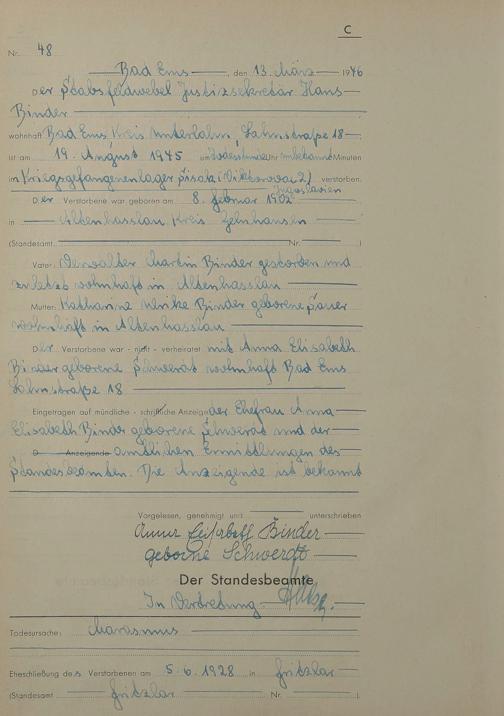 C
Nr. 48
Bad Ems, den 13. März 1946
Der Stabsfeldwebel Justizsekretär Hans
Binder
wohnhaft Bad Ems Kreis Unterlahn, Lahnstraße 18
ist am 19. August 1945 um Todesstunde Uhr unbekannt Minuten
im Kriegsgefangenenlager Sisak verstorben.
Jugoslavien
Der Verstorbene war geboren am 8. Februar 1902
in Altenhasslau Kreis Gelnhausen
(Standesamt Nr. )
Vater: Verwalter Martin Binder gestorben und
zuletzt wohnhaft in Altenhasslau
Mutter: Katharine Ulrike Binder geborene
wohnhaft in Altenhasslau
Der Verstorbene war - nicht - verheiratet mit Anna Elisabeth
Binder geborene Schwerdt wohnhaft Bad Ems
Lahnstraße 18
Eingetragen auf mündliche - schriftliche Anzeige der Ehefrau Anna
Elisabeth Binder geborene Schwerdt und der
D Anzeigende amtlichen Ermittlungen des
Standesbeamten. Die Anzeigende ist bekannt
Vorgelesen, genehmigt und unterschrieben
Anna Elisabeth Binder
geborne Schwerdt
Der Standesbeamte
In Vertretung
Todesursache: Marasmus
Eheschließung des Verstorbenen am 5.6.1928 in Fritzlar
(Standesamt Fritzlar Nr. )